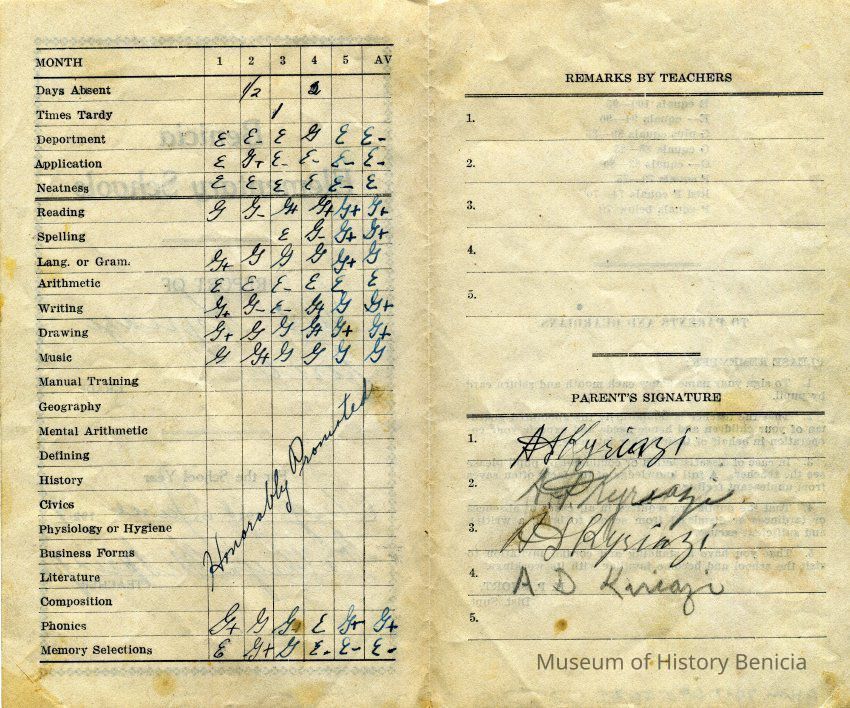 MONTH 1 2 3 4 5 AV
Days Absent 1/2 2
Times Tardy 1
Deportment E E- E G E E-
Application E G+ E- E- E- E-
Neatness E E E E E- E
Reading G G- G+ G+ G+ G+
Spelling E G- G+ G+
Lang. or Gram. G+ G G G G+ G
Arithmetic E E E- E E E
Writing G+ G- E- G+ G G+
Drawing G+ G G G+ G+ G+
Music G G+ G G G G
Manual Training
Geography
Mental Arithmetic
Defining
History
Civics
Physiology or Hygiene
Business Forms
Literature
Composition
Honorably Promoted
Phonics G+ G G+ E G+ G+
Memory Selections E G+ G E- E- E-
REMARKS BY TEACHERS
1.
2.
3.
4.
5.
PARENT'S SIGNATURE
1. Kyriazi
2. Kyriazi
3. Kyriazi
4. A D Kiriazi
5.
Museum of History Benicia